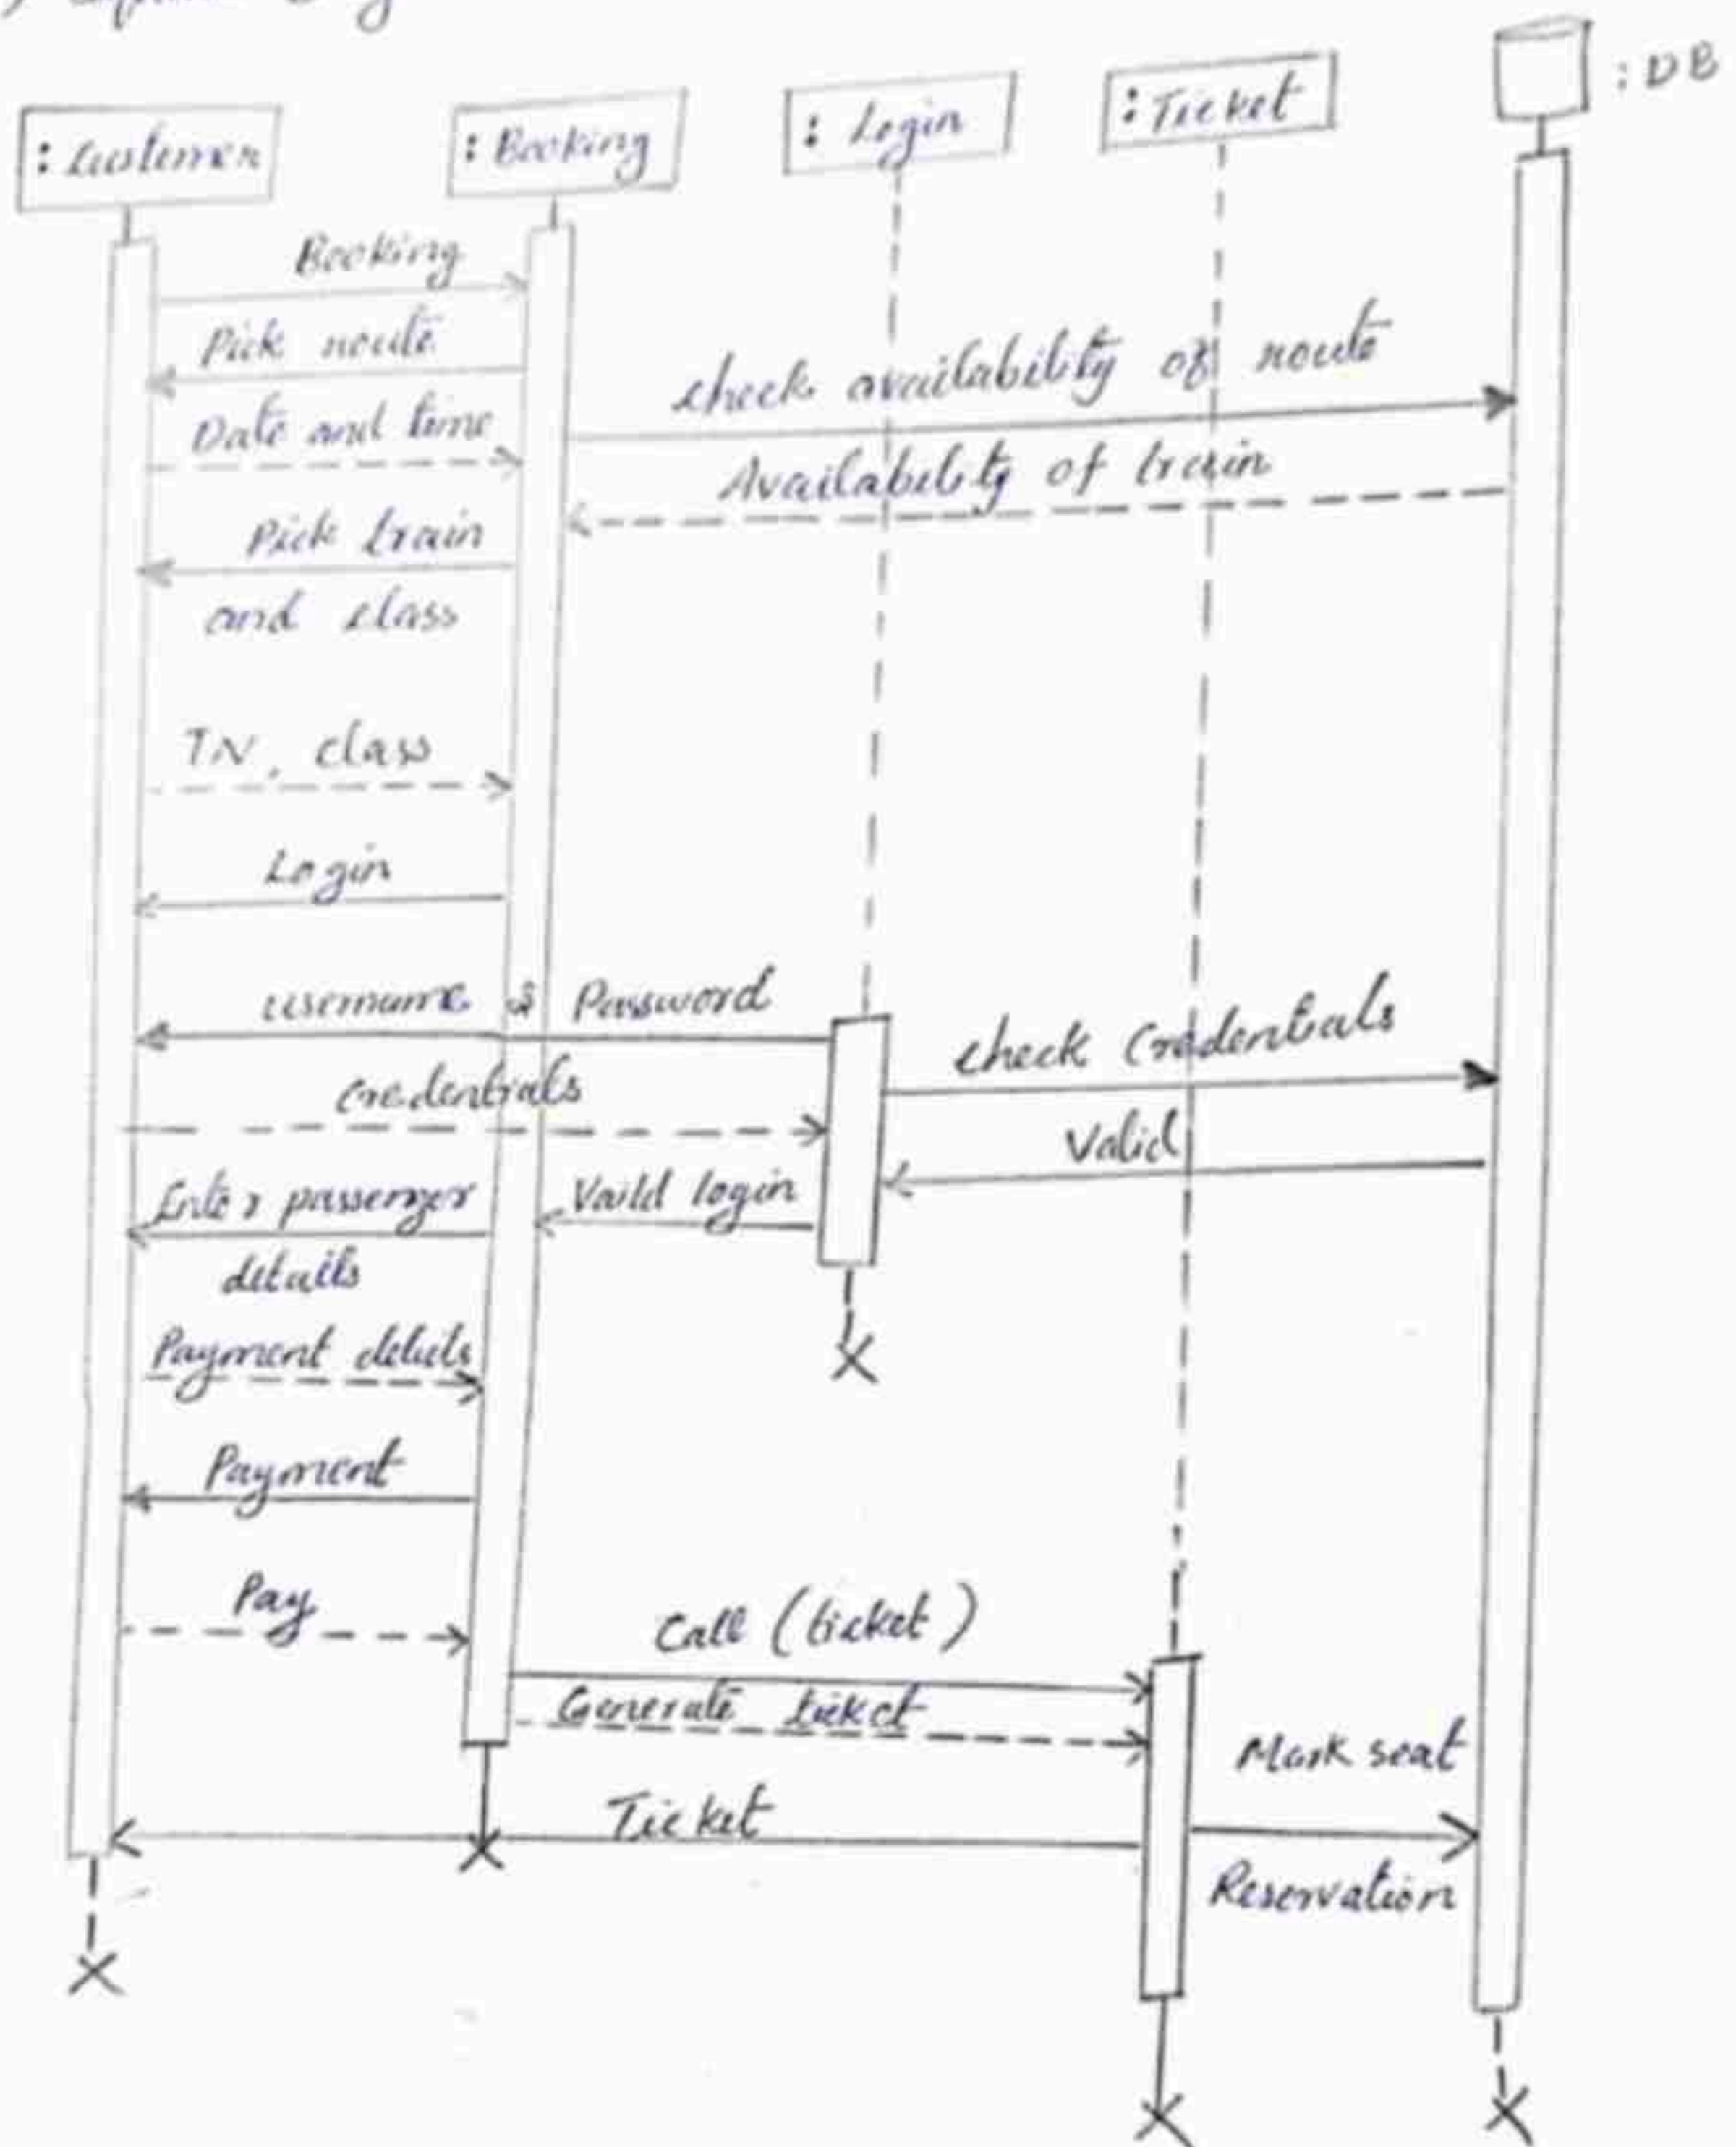 : Customer
: Booking
: Login
: Ticket
: DB
Booking
Pick route
check availability of route
Date and time
Availability of train
Pick train
and class
TN, class
Login
username & Password
check Credentials
credentials
Valid
Enter passenger
Vaild login
details
Payment details
Payment
Pay
Call (ticket)
Generate ticket
Mark seat
Ticket
Reservation